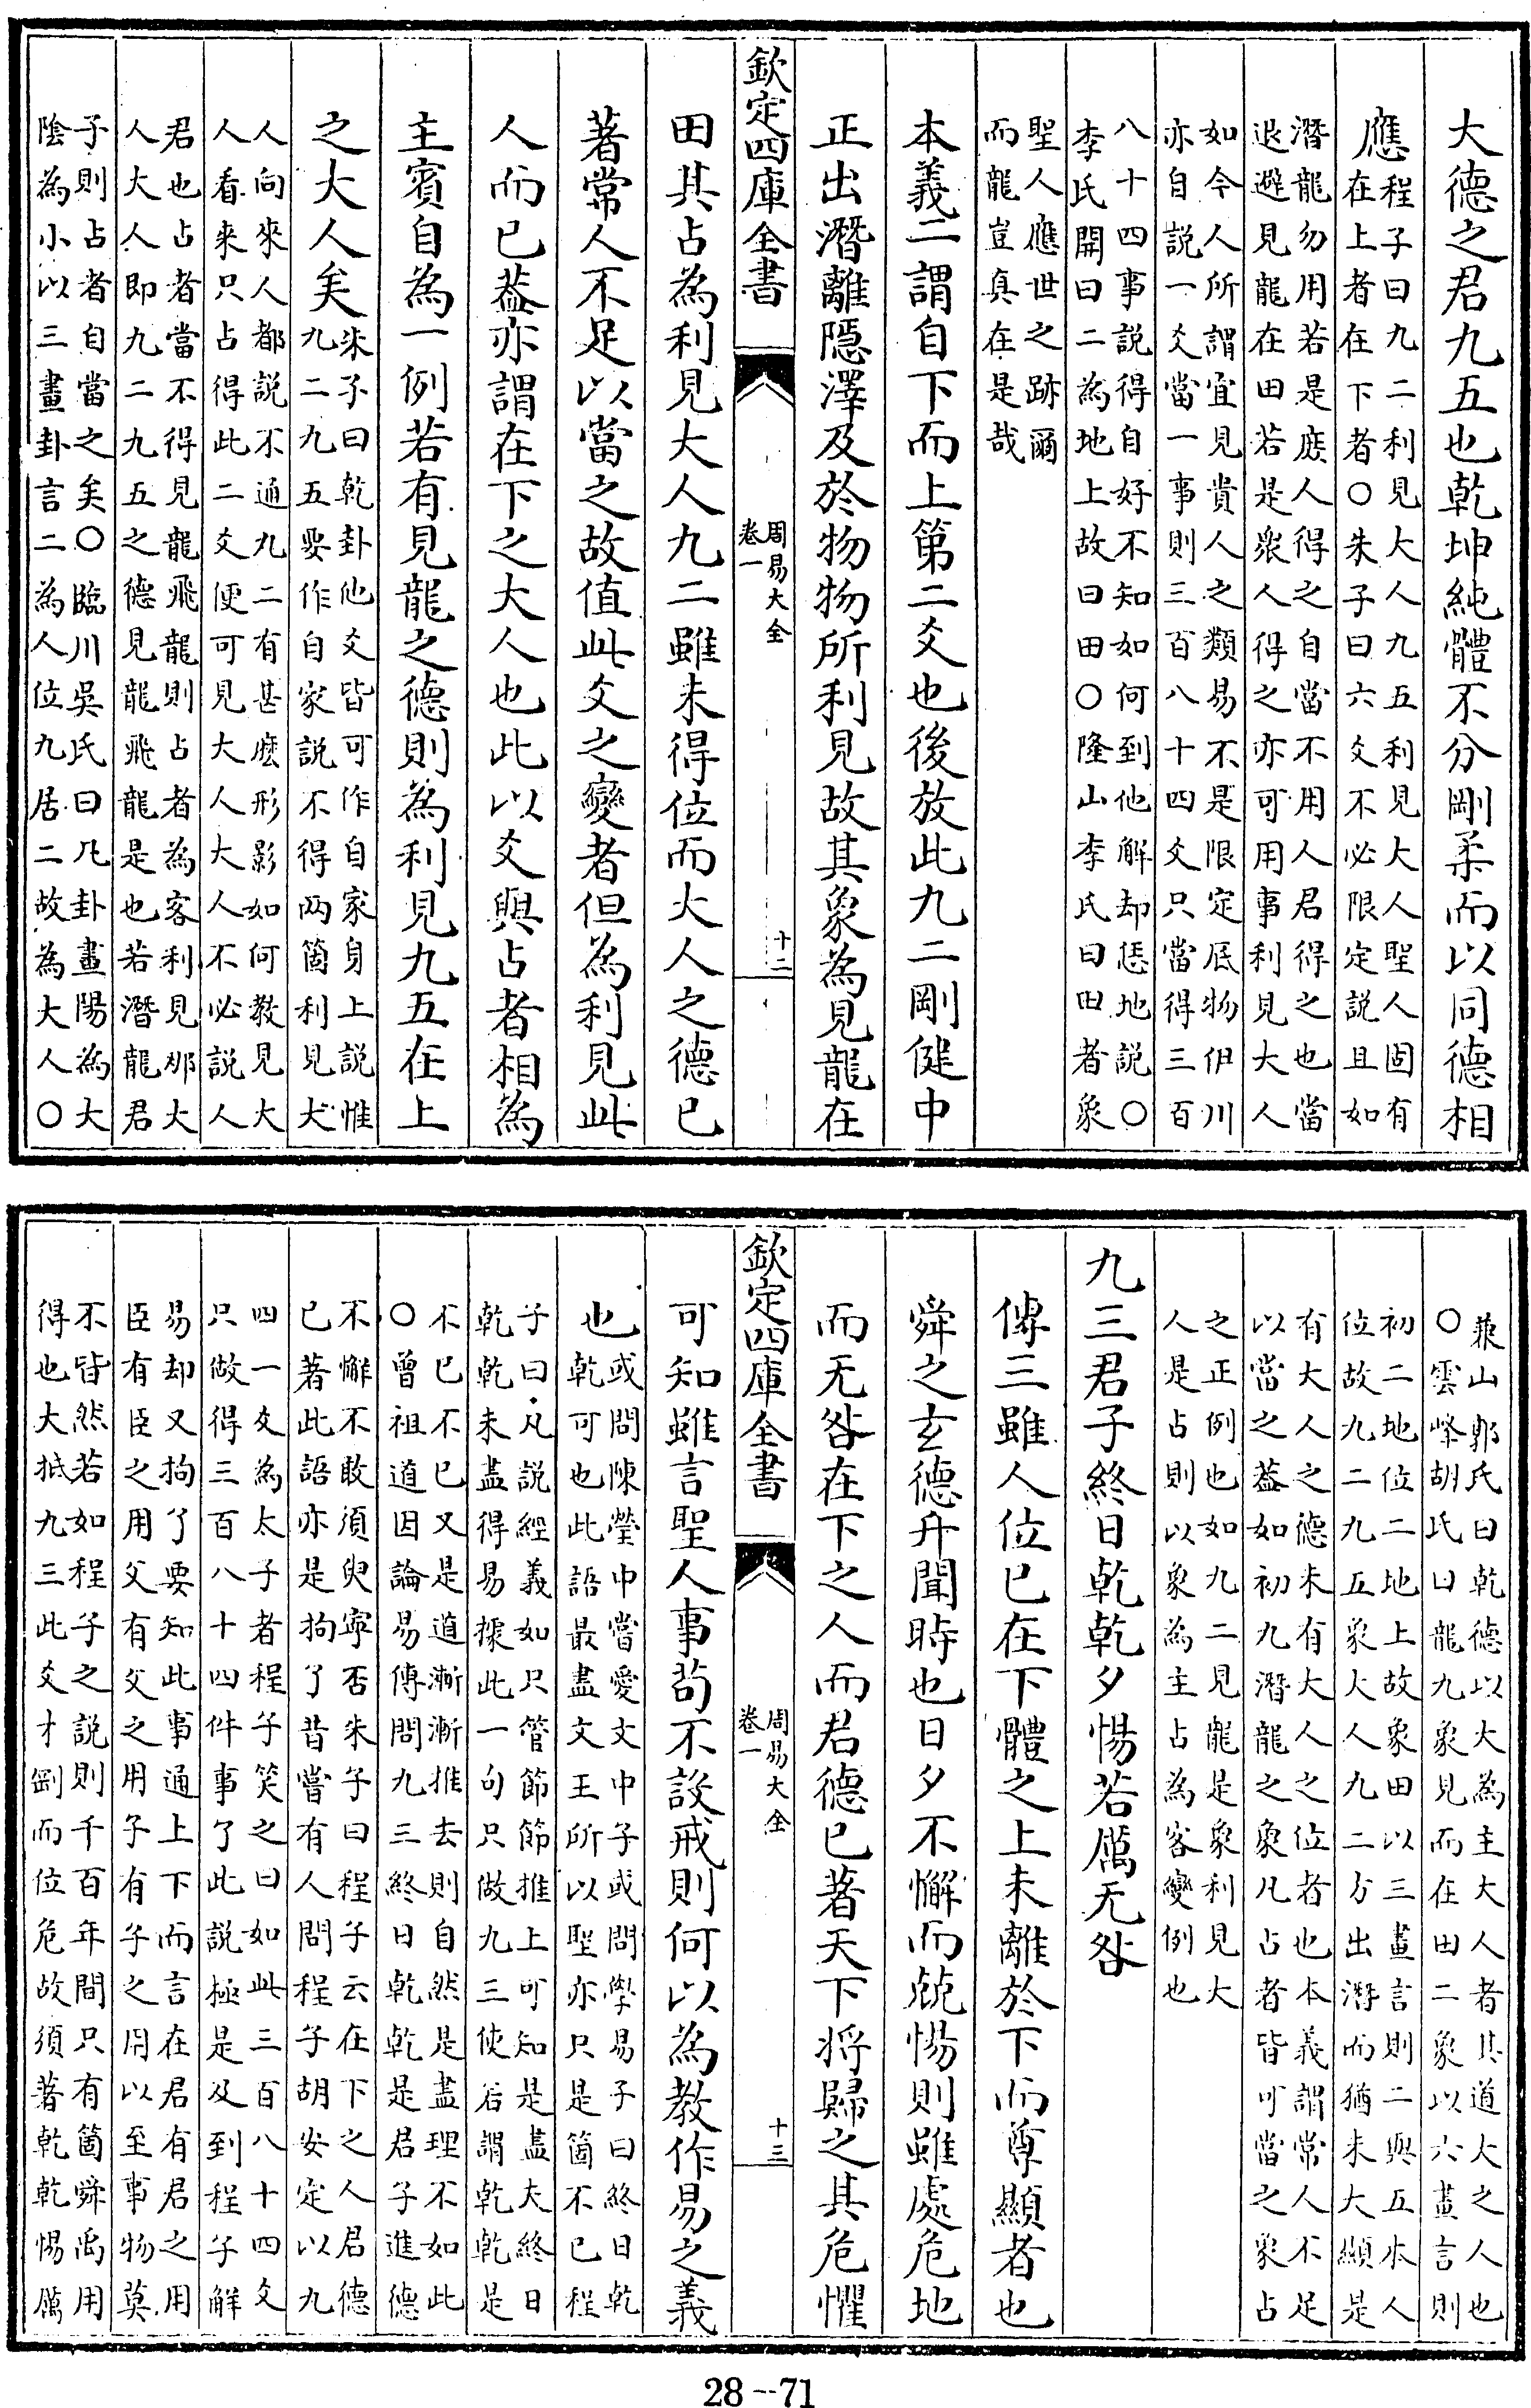 大德之君九五也乾坤純體不分剛柔而以同德相
應程子曰九二利見大人九五利見大人聖人固有
在上者在下者○朱子曰六爻不必限定説且如
潛龍勿用若是庶人得之自當不用人君得之也當
退避見龍在田若是衆人得之亦可用事利見大人
如今人所謂宜見貴人之類易不是限定底物伊川
亦自説一爻當一事則三百八十四爻只當得三百
八十四事説得自好不知如何到他解却恁地説○
李氏開曰二為地上故曰田○隆山李氏曰田者象
聖人應世之跡爾
而龍豈真在是哉
本義二謂自下而上第二爻也後放此九二剛健中
正出潛離隱澤及於物物所利見故其象為見龍在
欽定四庫全書
周易大全
卷一
十二
田其占為利見大人九二雖未得位而大人之德已
著常人不足以當之故值此爻之變者但為利見此
人而已蓋亦謂在下之大人也此以爻與占者相為
主賓自為一例若有見龍之德則為利見九五在上
之大人矣朱子曰乾卦他爻皆可作自家身上説惟
九二九五要作自家説不得兩箇利見大
人向來人都説不通九二有甚麽形影如何教見大
人看来只占得此二爻便可見大人大人不必説人
君也占者當不得見龍飛龍則占者為客利見那大
人大人即九二九五之德見龍飛龍是也若潛龍君
子則占者自當之矣○臨川吳氏曰凡卦畫陽為大
陰為小以三畫卦言二為人位九居二故為大人○
兼山郭氏曰乾德以大為主大人者其道大之人也
○雲峰胡氏曰龍九象見而在田二象以六畫言則
初二地位二地上故象田以三畫言則二與五本人
位故九二九五象大人九二方出潛而猶未大顯是
有大人之德未有大人之位者也本義謂常人不足
以當之蓋如初九潛龍之象凡占者皆可當之象占
之正例也如九二見龍是象利見大
人是占則以象為主占為客變例也
九三君子終日乾乾夕惕若厲无咎
傳三雖人位已在下體之上未離於下而尊顯者也
舜之玄德升聞時也日夕不懈而兢惕則雖處危地
而无咎在下之人而君德已著天下將歸之其危懼
欽定四庫全書
周易大全
卷一
十三
可知雖言聖人事苟不設戒則何以為教作易之義
也或問陳瑩中嘗愛文中子或問學易子曰終日乾
乾可也此語最盡文王所以聖亦只是箇不已程
子曰凡説經義如只管節節推上可知是盡夫終日
乾乾未盡得易據此一句只做九三使若謂乾乾是
不已不已又是道漸漸推去則自然是盡理不如此
○曾祖道因論易傳問九三終日乾乾是君子進德
不懈不敢須臾寧否朱子曰程子云在下之人君德
已著此語亦是拘了昔嘗有人問程子胡安定以九
四一爻為太子者程子笑之曰如此三百八十四爻
只做得三百八十四件事了此説極是及到程子解
易却又拘了要知此事通上下而言在君有君之用
臣有臣之用父有父之用子有子之用以至事物莫
不皆然若如程子之説則千百年間只有箇舜禹用
得也大抵九三此爻才剛而位危故須著乾乾惕厲
28--71